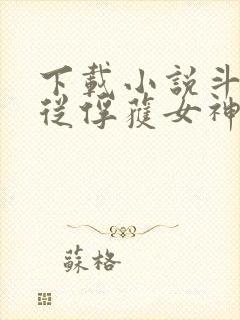 下載小說斗
從俘獲女神
蘇格